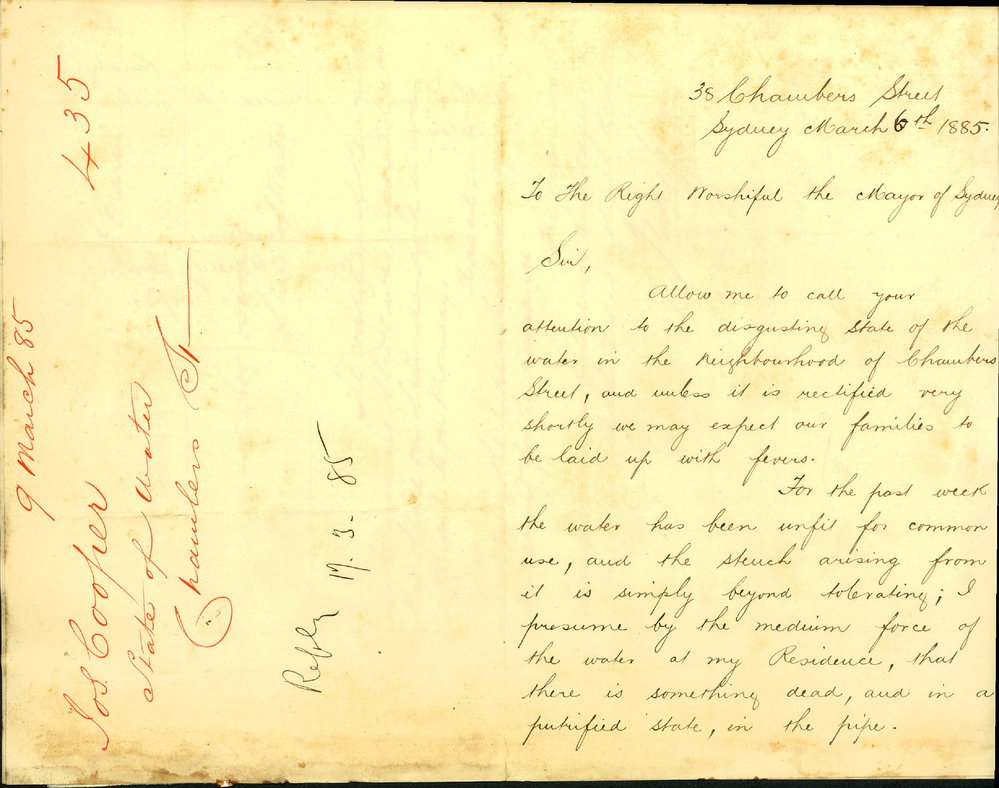 435
9 March 85
Jos. Cooper
State of Water
Chambers St
Reply 17.3.85
38 Chambers Street
Sydney March 6th 1885.
To The Right Worshiful the Mayor of Sydney
Sir,
Allow me to call your
attention to the disgusting state of the
water in the Neighbourhood of Chambers
Street, and unless it is rectified very
shortly we may expect our families to
be laid up with fevers.
For the past week
the water has been unfit for common
use, and the stench arising from
it is simply beyond tolerating; I
presume by the medium force of
the water at my Residence, that
there is something dead, and in a
putrified state, in the pipe.